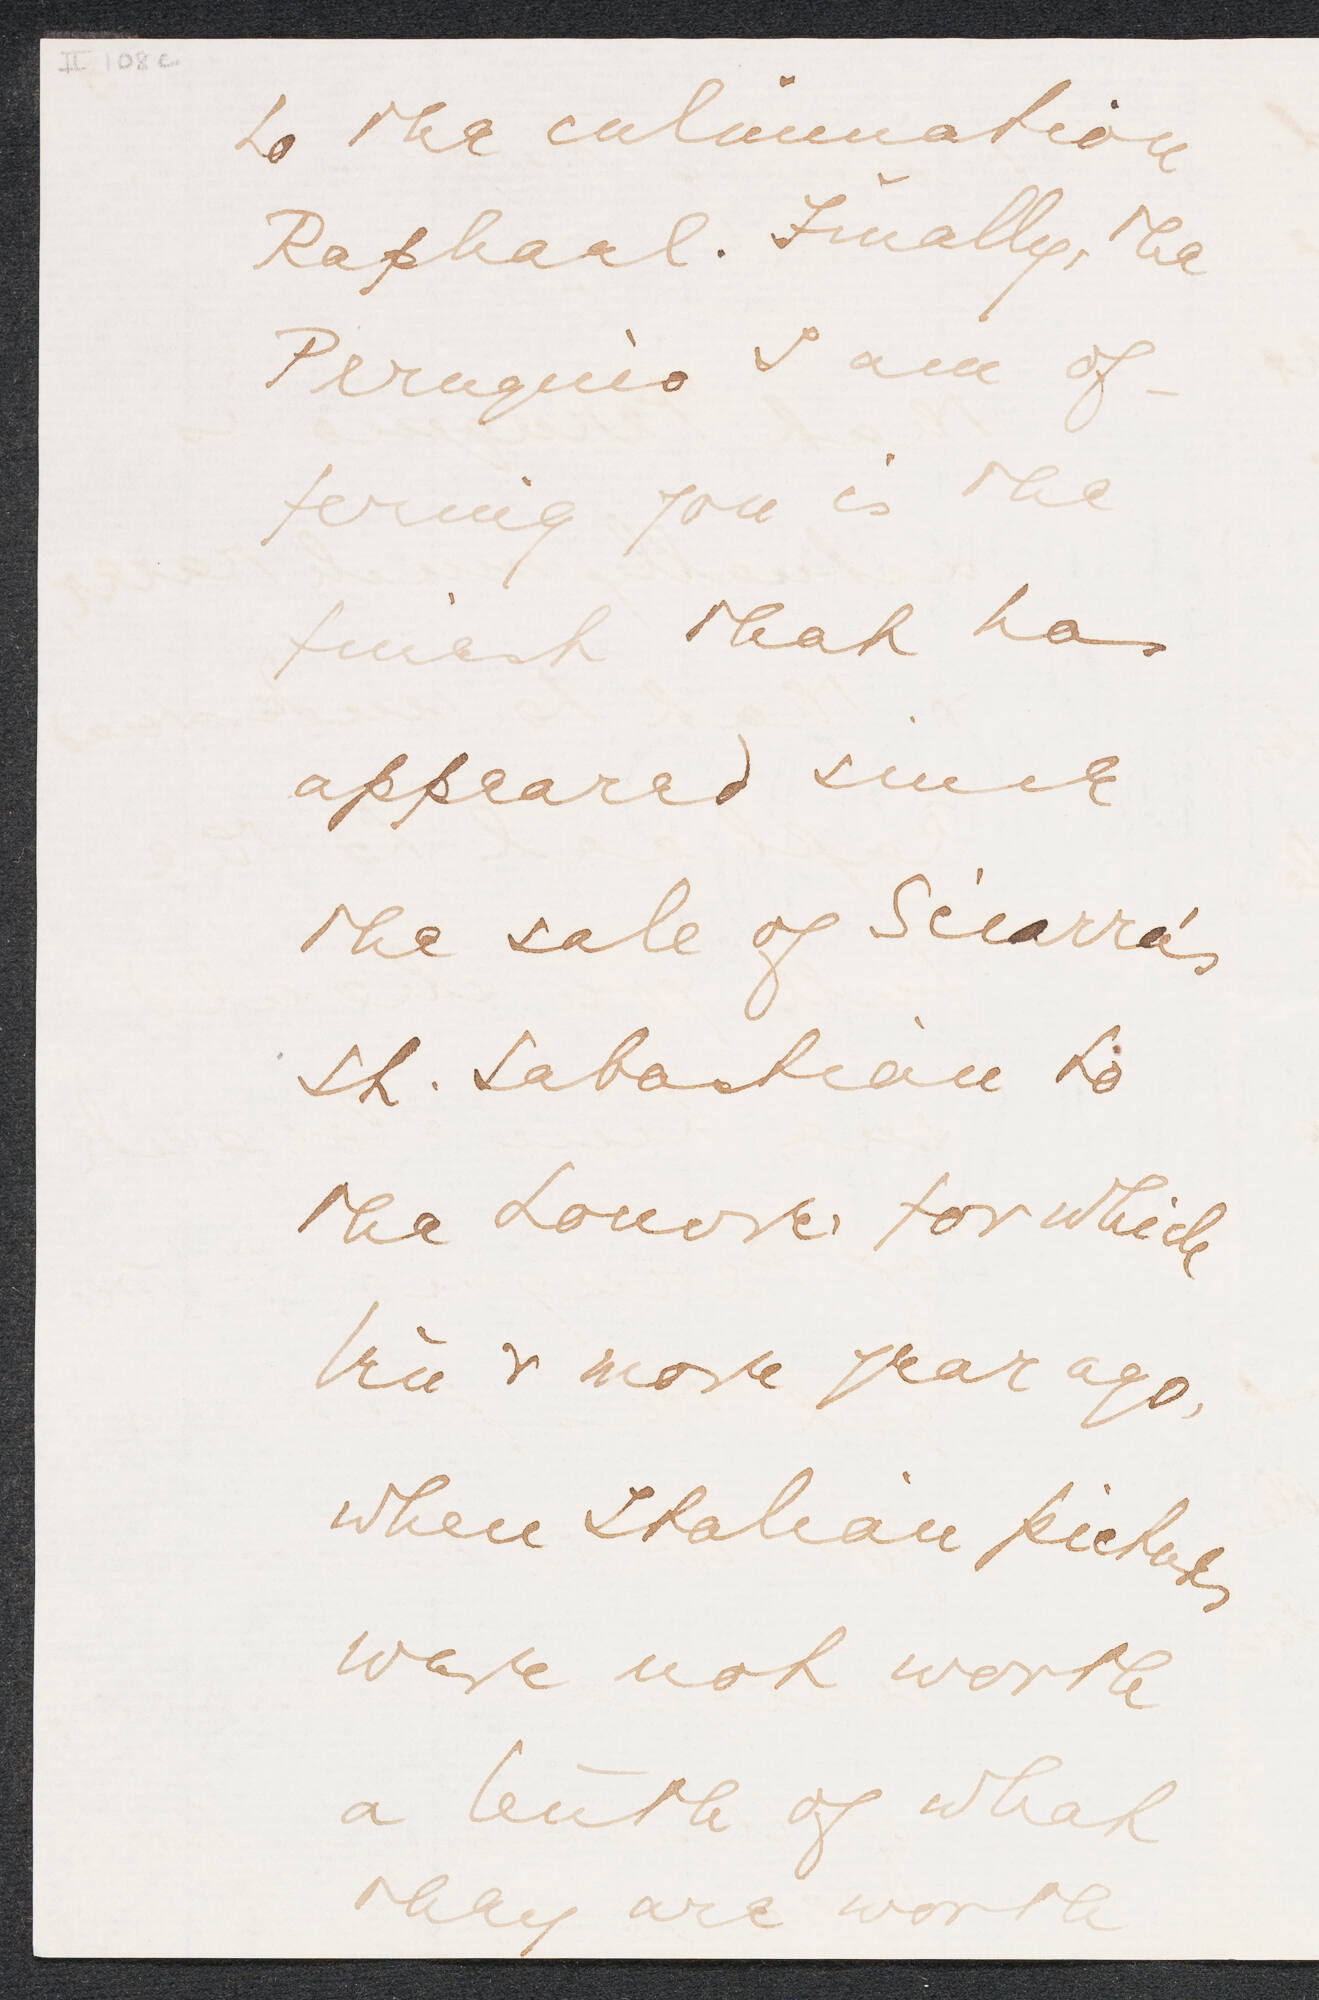 II 108c
to the culmination
Raphael. Finally, the
Perugino I am of-
fering you is the
finest that has
appeared since
the sale of Sciarra's
St. Sebastian to
the Louvre, for which
ten & more year ago,
when Italian pictures
were not worth
a tenth of what
they are worth